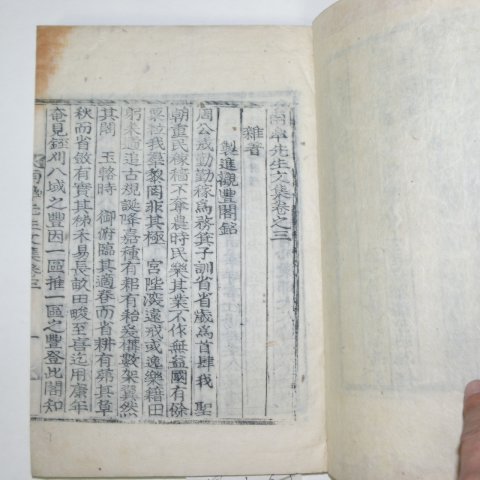 蘭皐先生文集卷之三
雜著
製進觀豐閣銘
周公戒勤勤稼爲務箕子訓省省歲爲首肆我 聖
朝重民稼穡不奪農時民樂其業不作無益國有餘
粟粒我羣黎罔非其極 宮陛淺遠戒或逸樂籍田
躬耒遹追古規誕降嘉種有耜有耛爰構數架翼然
其閣 玉輅時 御俯臨其適春而省耕有茀其章
秋而省斂有實其秭禾易長畝田畯至喜迄用康年
奄見銍刈八域之豐因一區推一區之豐登此閣知